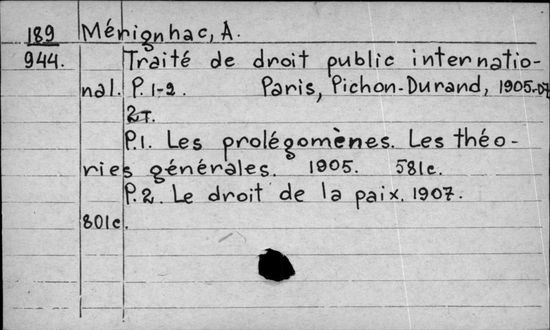 189 Mérignhac, A.
944. Traité de droit public internatio-
nal. P. 1-2. Paris, Pichon-Durand, 1905-07
2т.
P.1. Les prolégomènes. Les théo-
ries générales. 1905. 581c.
P.2. Le droit de la paix. 1907.
801c.